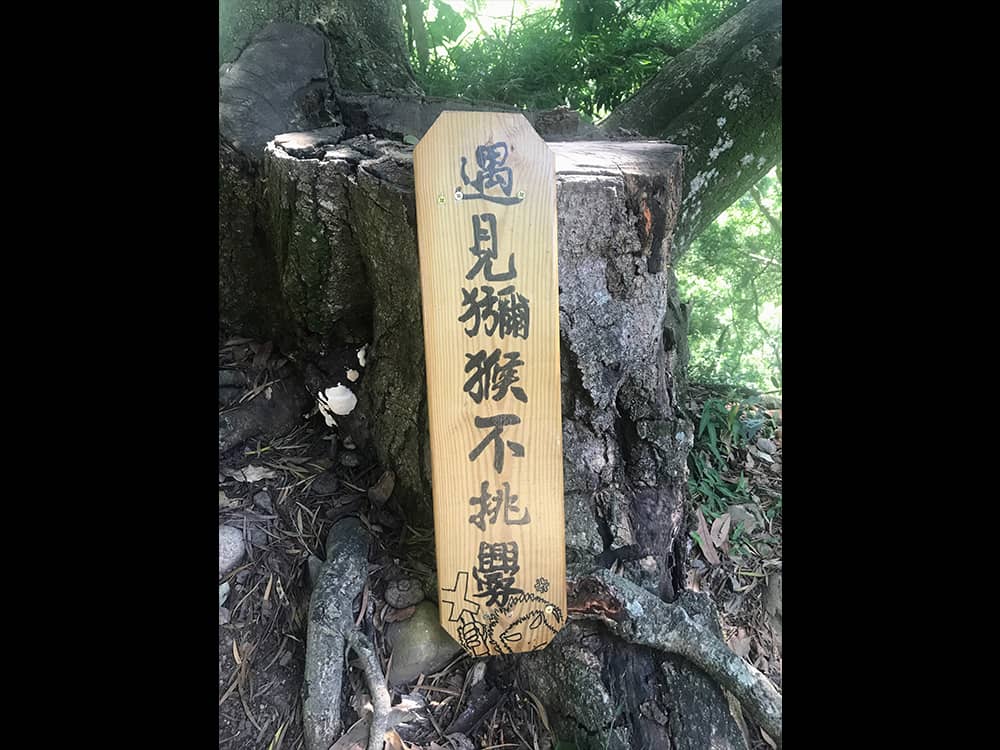 遇見獼猴不挑釁